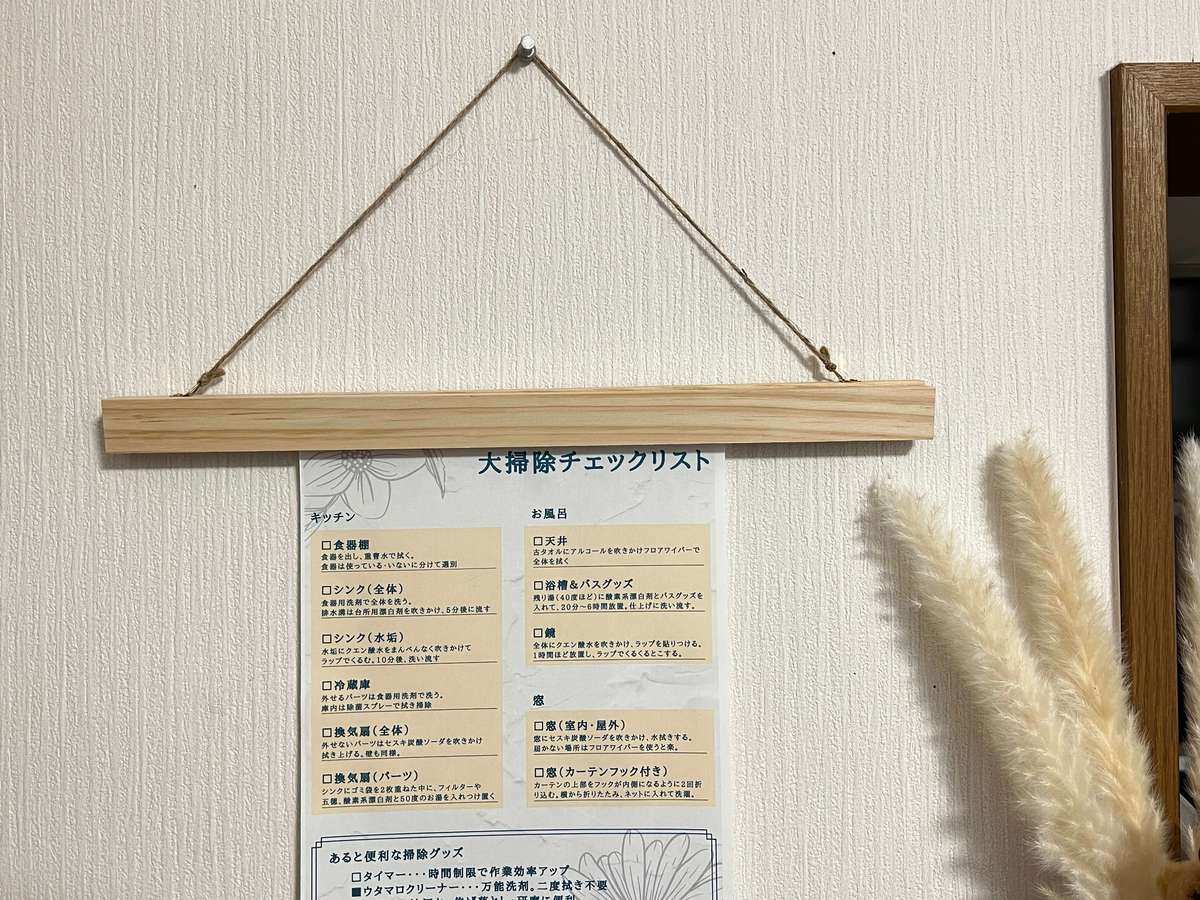 大掃除チェックリスト
キッチン
□食器棚
食器を出し、重曹水で拭く。
食器は使っている・いないに分けて選別
□シンク(全体)
食器用洗剤で全体を洗う。
排水溝は台所用漂白剤を吹きかけ、5分後に流す
□シンク(水垢)
水垢にクエン酸水をまんべんなく吹きかけて
ラップでくるむ。10分後、洗い流す
□冷蔵庫
外せるパーツは食器用洗剤で洗う。
庫内は除菌スプレーで拭き掃除
□換気扇(全体)
外せないパーツはセスキ炭酸ソーダを吹きかけ
拭き上げる。壁も同様。
□換気扇(パーツ)
シンクにゴミ袋を2枚重ねた中に、フィルターや
五徳、酸素系漂白剤と50度のお湯を入れつけ置く
お風呂
□天井
古タオルにアルコールを吹きかけフロアワイパーで
全体を拭く
□浴槽&バスグッズ
残り湯(40度ほど)に酸素系漂白剤とバスグッズを
入れて、20分～6時間放置。仕上げに洗い流す。
□鏡
全体にクエン酸水を吹きかけ、ラップを貼りつける。
1時間ほど放置し、ラップでくるくるとこする。
窓
□窓(室内・屋外)
窓にセスキ炭酸ソーダを吹きかけ、水拭きする。
届かない場所はフロアワイパーを使うと楽。
□窓(カーテンフック付き)
カーテンの上部をフックが内側になるように2回折
り込む。横から折りたたみ、ネットに入れて洗濯。
あると便利な掃除グッズ
□タイマー・・・時間制限で作業効率アップ
■ウタマロクリーナー・・・万能洗剤。二度拭き不要